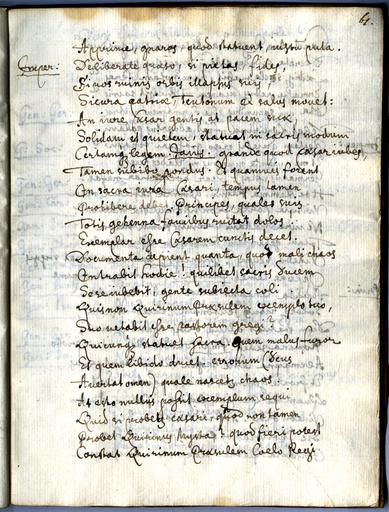 61.
Apprime, gnaros, quod statuent, nostru puta.
Deliberate quæso, si pietas, fides,
Si quos ruinis orbis illapsus suis,
Si cura patriæ, Teutonum et salus movet:
An jure, Cæsar gentis at pacem suæ
Solidam et quietem, statuat in sacris modum
Certamq legem. grande quod Cæsar jubet,
Tamen subibis pondus. Et quamvis forent
Con sacra jura Cæsari, tempus tamen
Prohibere debet Principes, quales suis
Totis gehenna faucibus ructat dolos!
Exemplar esse Cæsarem cunctis decet.
Documenta capient quanta, quod mali chaos
Contrahit hodie! quilibet sacris ducem
Se se jubebit, gente subiecta coli.
Quis non Quirinum Præsulem exemplo suo,
Suo vetabit esse pastorem gregi?
Quicunq statuet sacra, quem malus furor
Et quem libido ducet errorum Deus
Avertat omen, quale nascetur chaos.
At esto nullus possit exemplum sequi
Quid si probetur Cæsari, quod non tamen
Probet Quirinus Mysta? quod fieri potest
Constat Quirinum Præsulem Coelo Regi